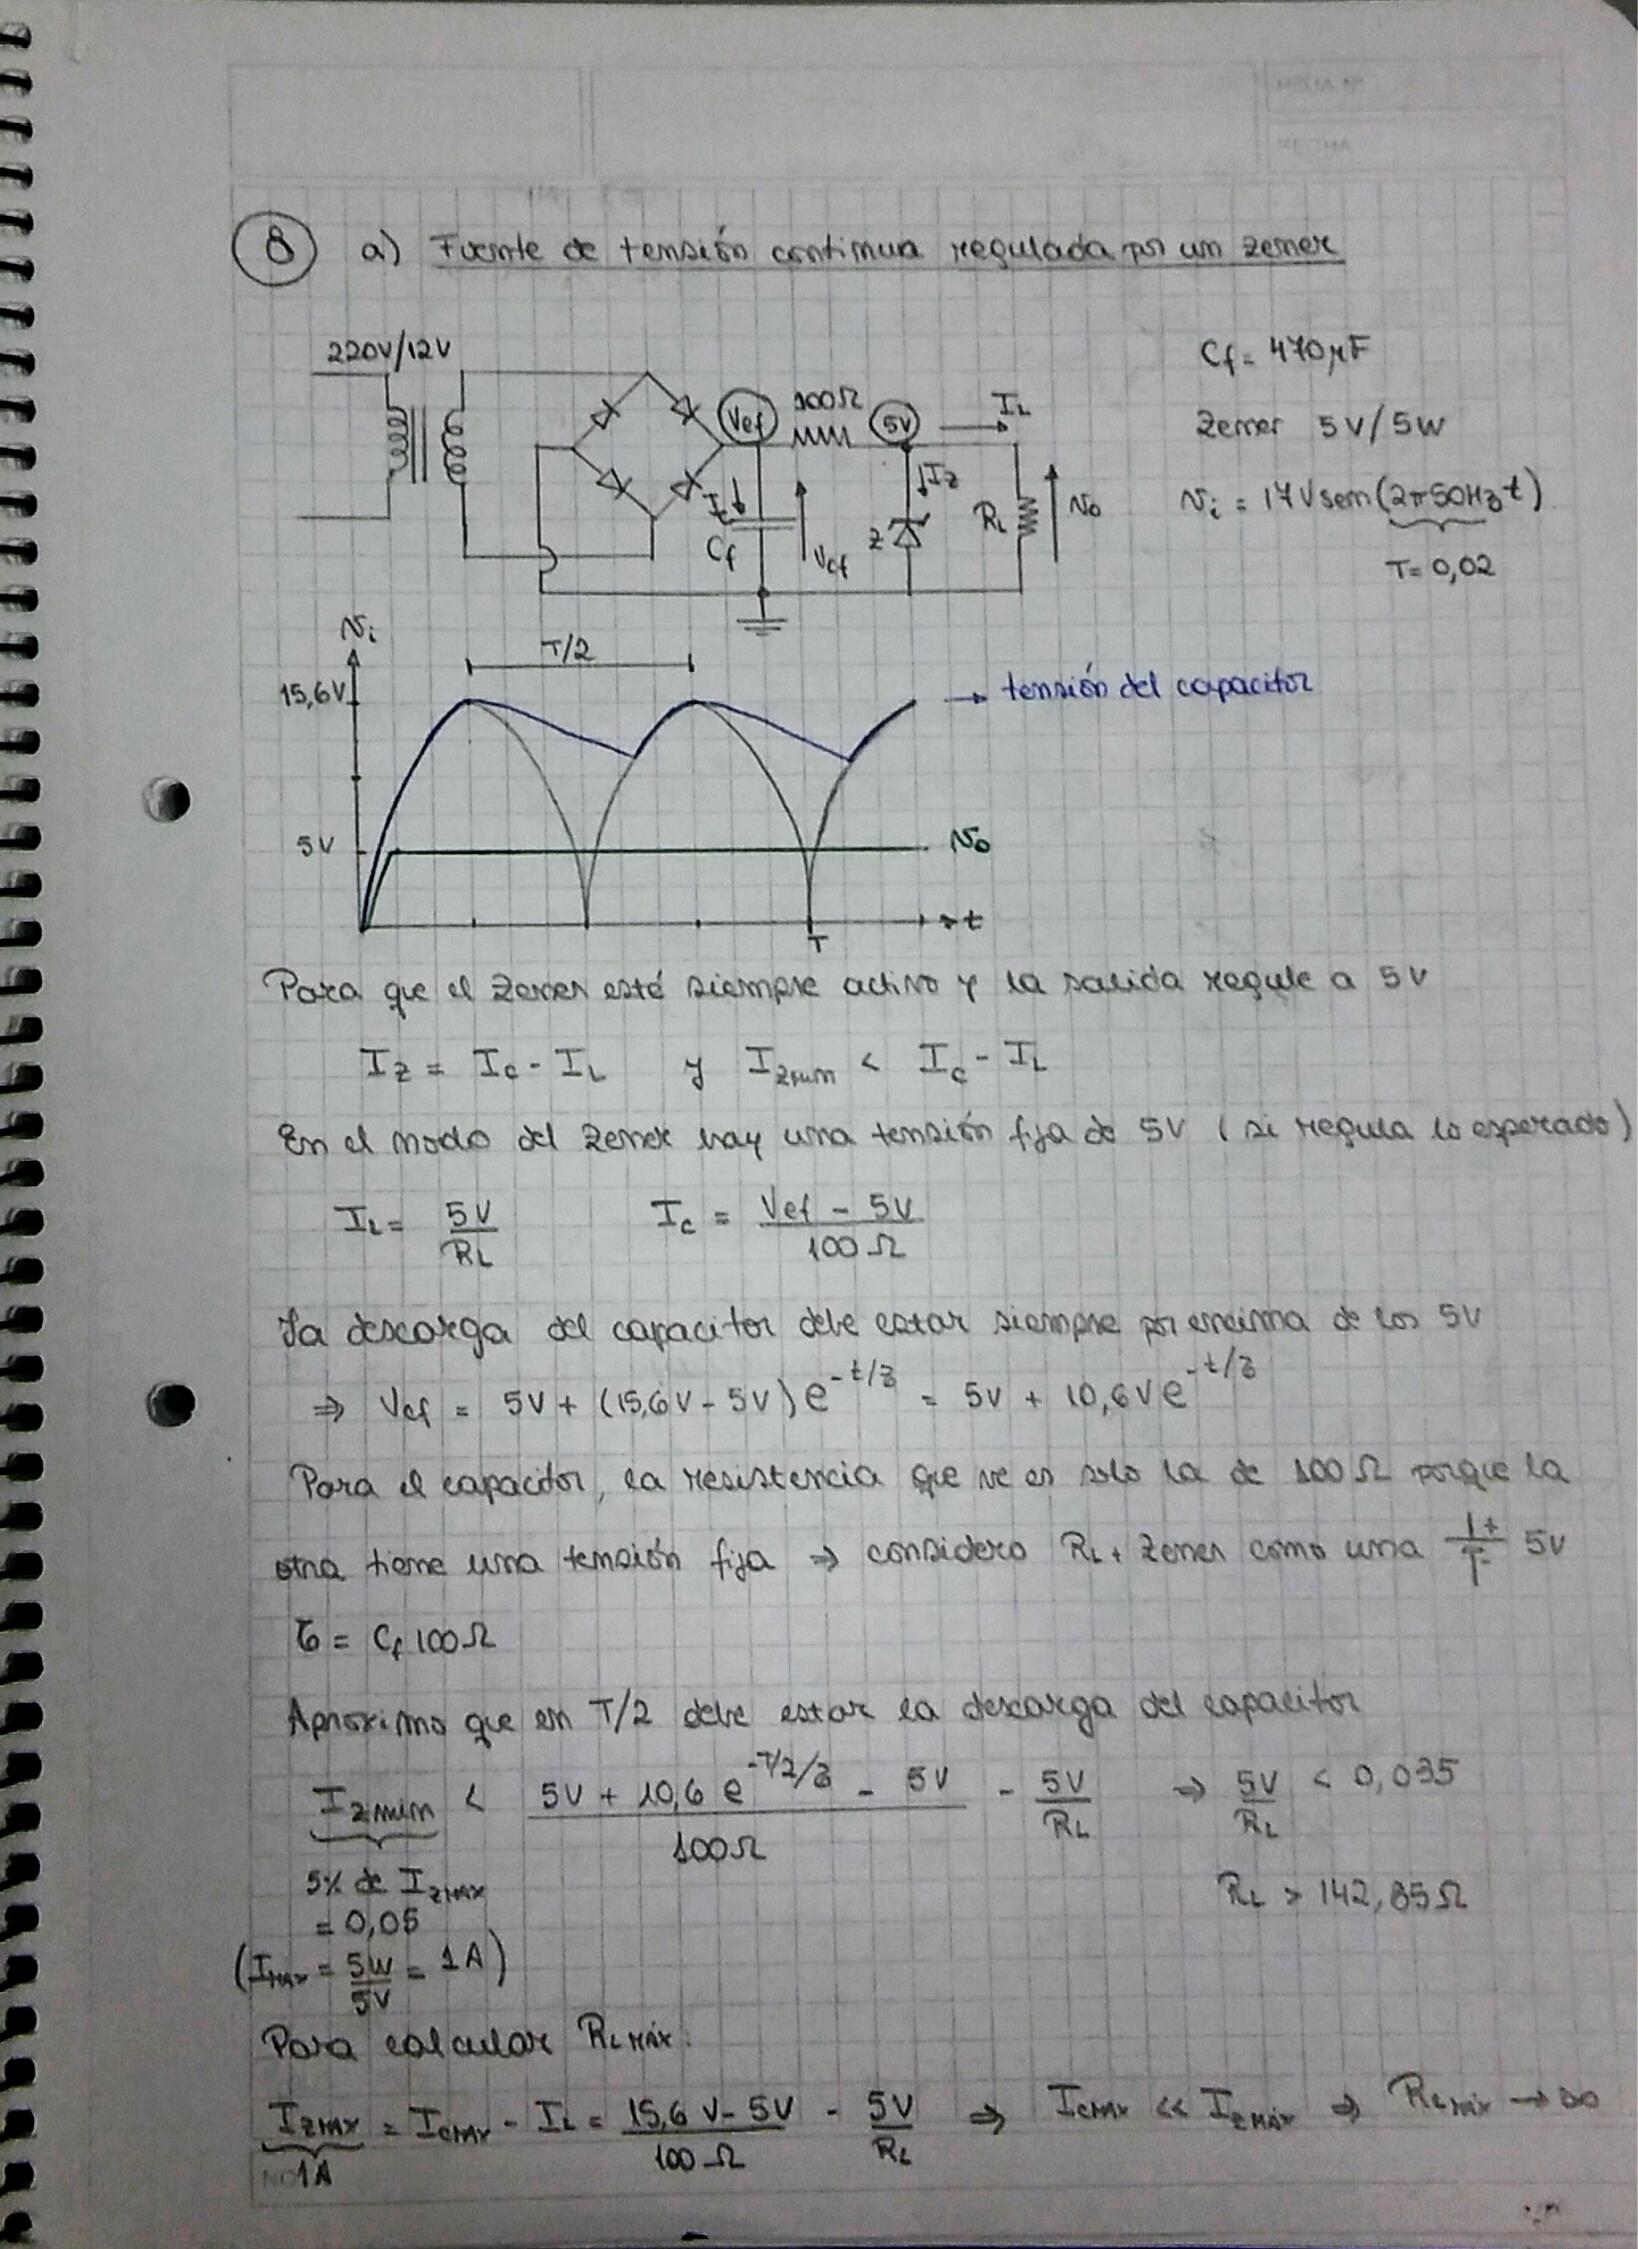 HOJA Nº
FECHA
8 a) Fuente de tensión continua regulada por un zener
220V/12V
Cf = 470μF
Vcf 100Ω 5V IL
Zener 5V/5W
Iz
Ic Cf Vcf Z RL vo
vi = 17V sen(2π50Hz t)
T = 0,02
vi
T/2
15,6V
→ tensión del capacitor
5V
vo
T
→ t
Para que el Zener esté siempre activo y la salida regule a 5V
Iz = Ic - IL y Izmin < Ic - IL
En el nodo del Zener hay una tensión fija de 5V (si regula lo esperado)
IL = 5V/RL Ic = (Vcf - 5V)/100Ω
La descarga del capacitor debe estar siempre por encima de los 5V
⇒ Vcf = 5V + (15,6V - 5V) e^(-t/τ) = 5V + 10,6V e^(-t/τ)
Para el capacitor, la resistencia que ve es solo la de 100Ω porque la
otra tiene una tensión fija ⇒ considero RL + Zener como una + - 5V
τ = Cf 100Ω
Aproximo que en T/2 debe estar la descarga del capacitor
Izmin < (5V + 10,6 e^(-T/2/τ) - 5V)/100Ω - 5V/RL ⇒ 5V/RL < 0,035
5% de IzMAX
= 0,05
RL > 142,85Ω
(IMAX = 5W/5V = 1A)
Para calcular RL MÁX:
IzMAX = IcMAX - IL = (15,6V - 5V)/100Ω - 5V/RL ⇒ IcMAX << IzMÁX ⇒ RLMÁX → ∞
1A